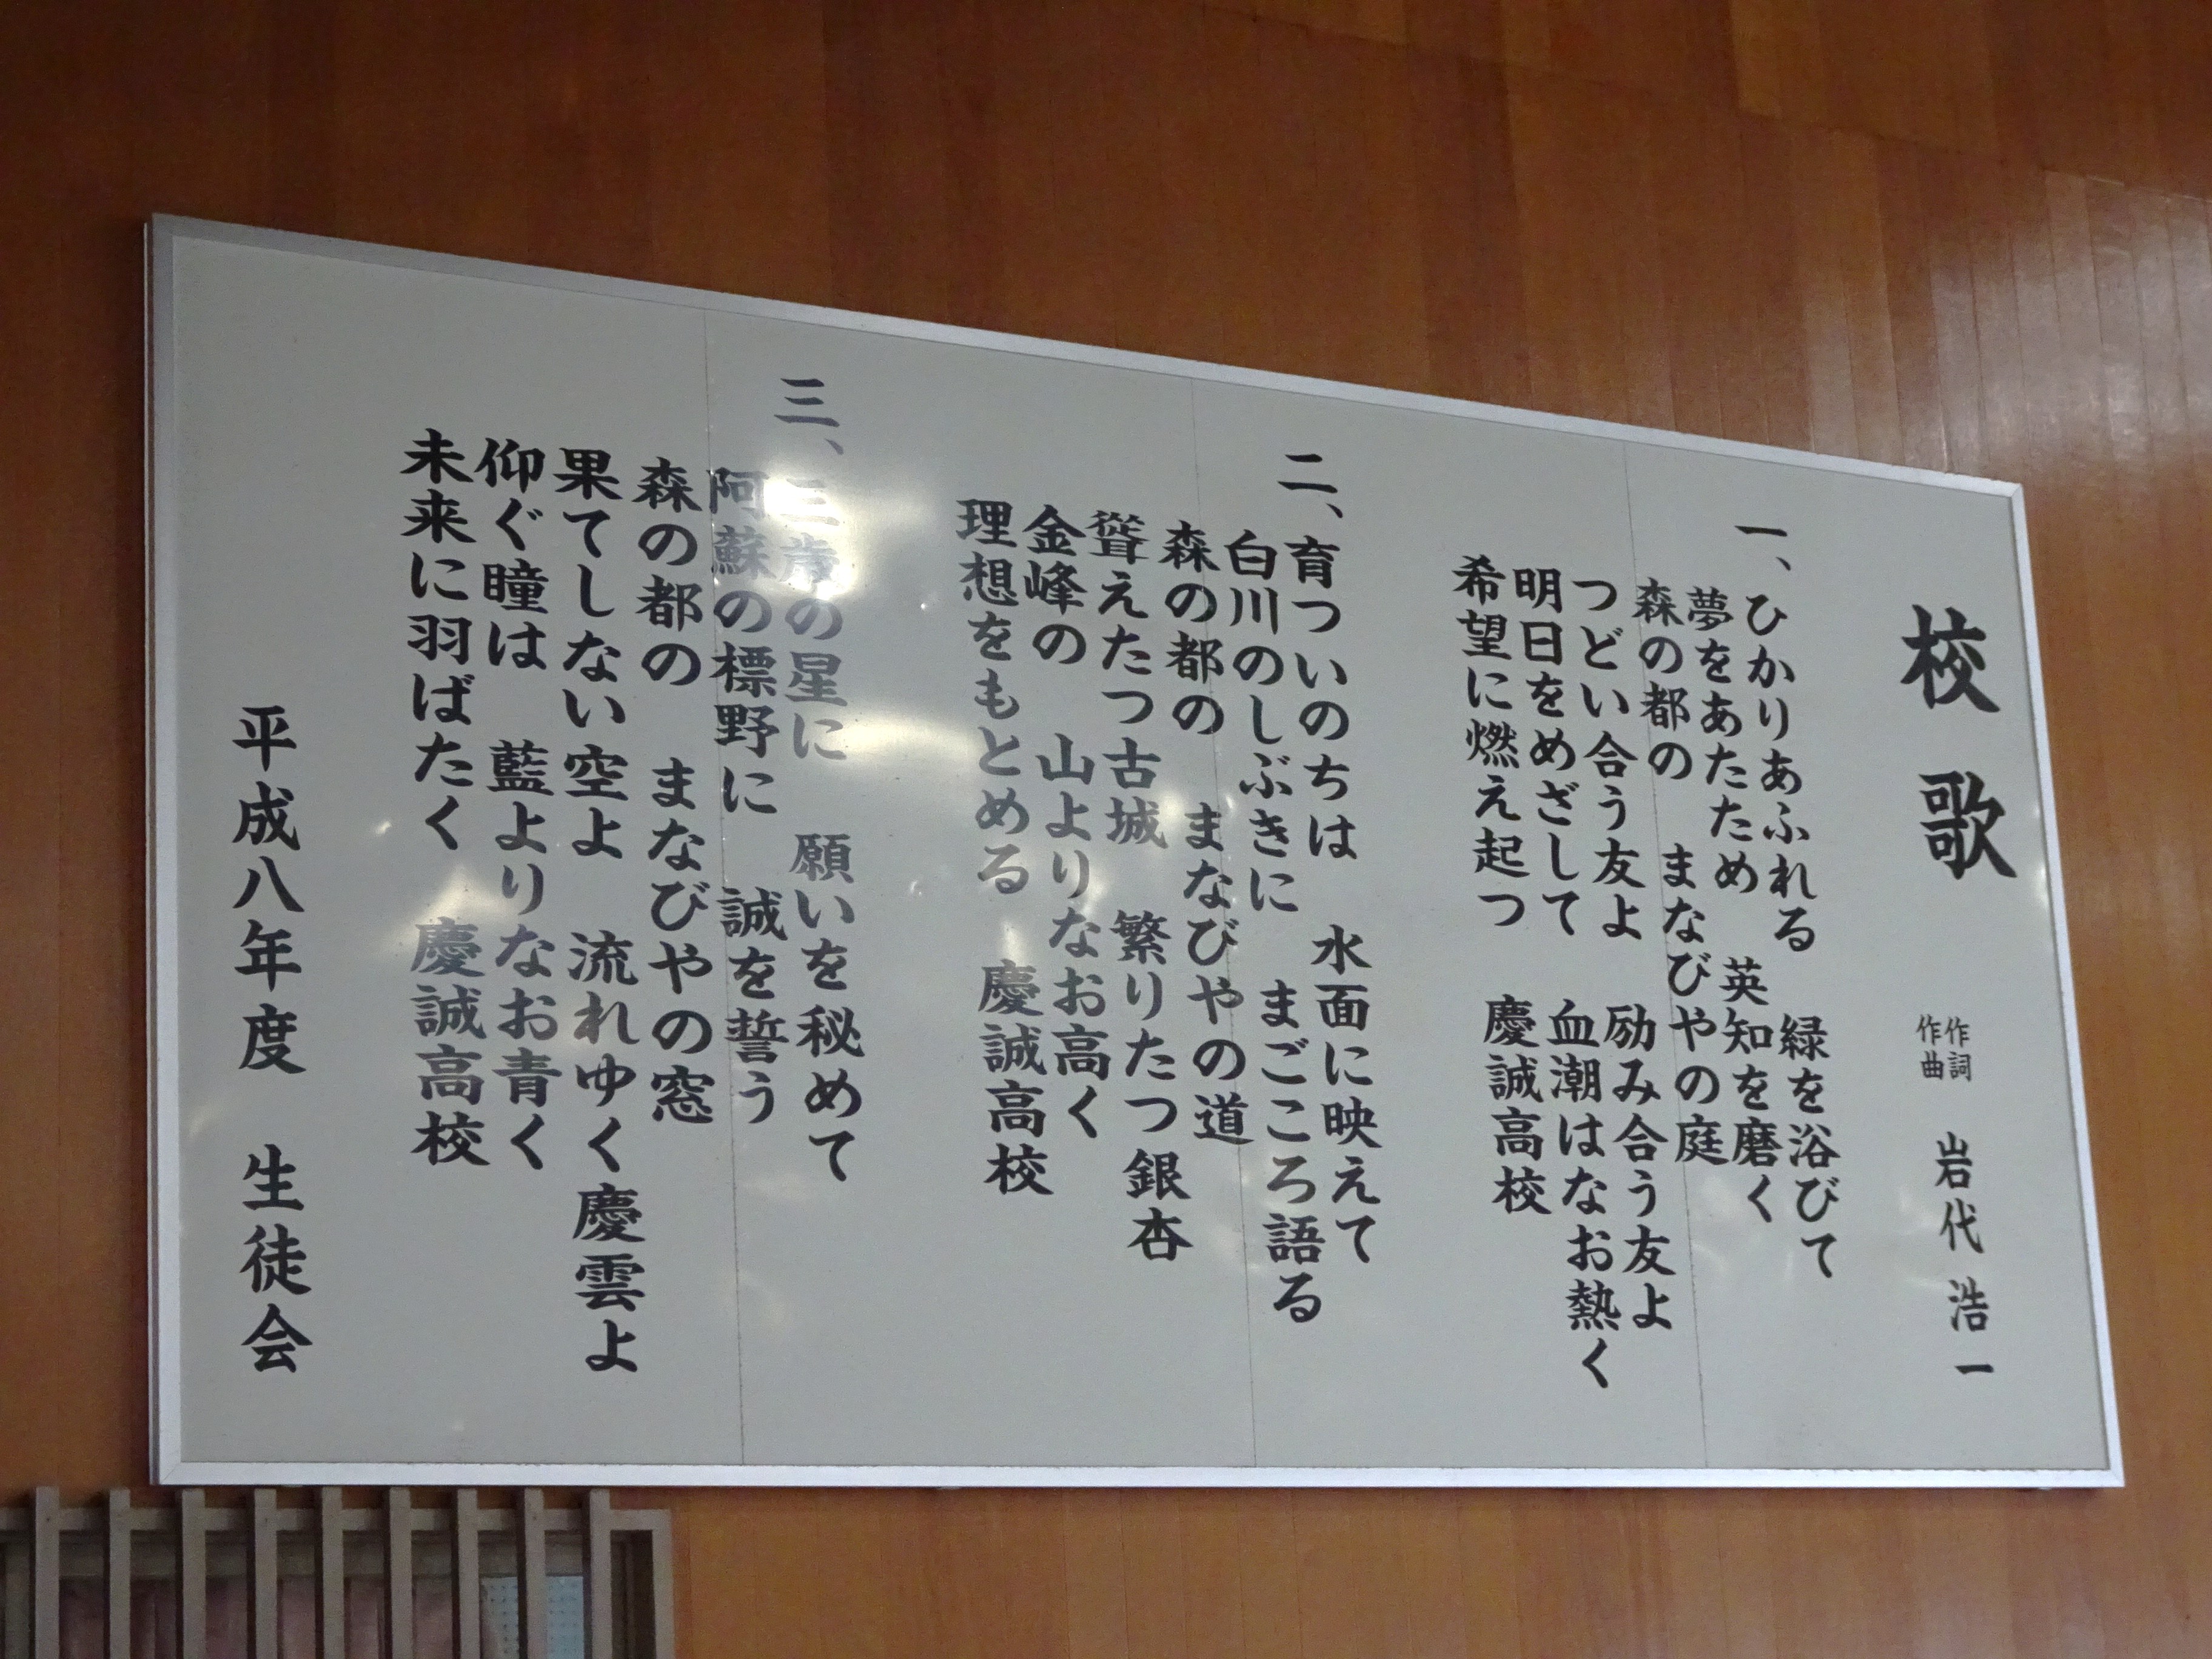 校歌
作詞
作曲
岩代浩一
一、ひかりあふれる 緑を浴びて
夢をあたため 英知を磨く
森の都の まなびやの庭
つどい合う友よ 励み合う友よ
明日をめざして 血潮はなお熱く
希望に燃え起つ 慶誠高校
二、育ついのちは 水面に映えて
白川のしぶきに まごころ語る
森の都の まなびやの道
聳えたつ古城 繁りたつ銀杏
金峰の 山よりなお高く
理想をもとめる 慶誠高校
三、三歳の星に 願いを秘めて
阿蘇の標野に 誠を誓う
森の都の まなびやの窓
果てしない空よ 流れゆく慶雲よ
仰ぐ瞳は 藍よりなお青く
未来に羽ばたく 慶誠高校
平成八年度 生徒会